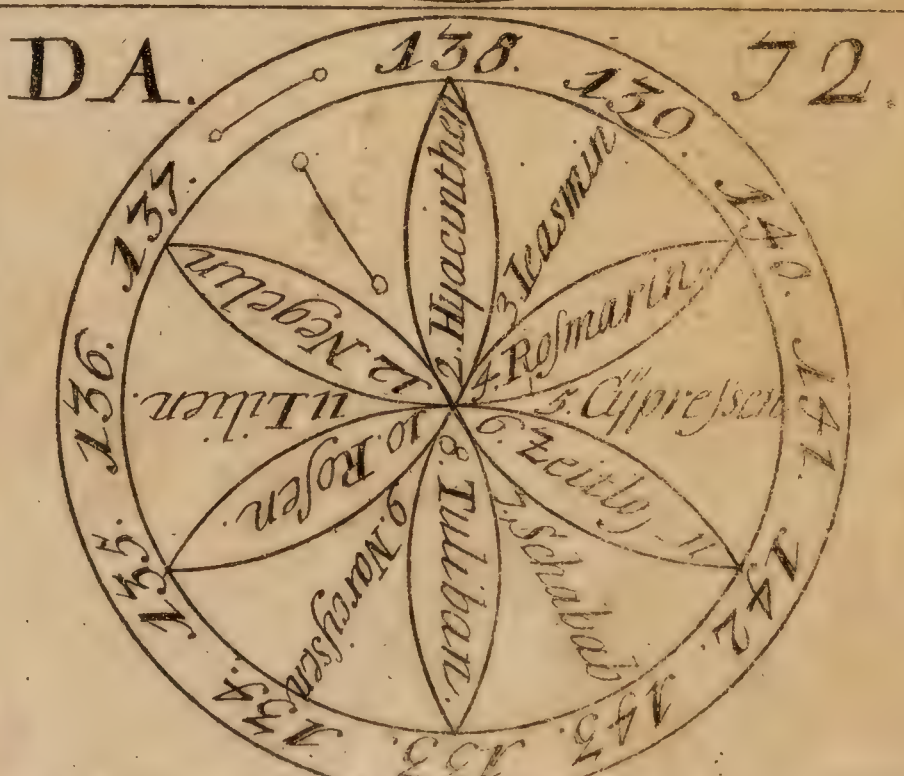 DA. 72.
138.
139.
140.
141.
142.
143.
133.
134.
135.
136.
137.
2. Hyacinthen
3. Ieasmin
4. Roſmarin.
5. Cÿpreſsen
6.
7. Schabab
8. Tuliban.
9. Narcÿſsen
10. Roſen.
11 Lilien.
12. Negelin